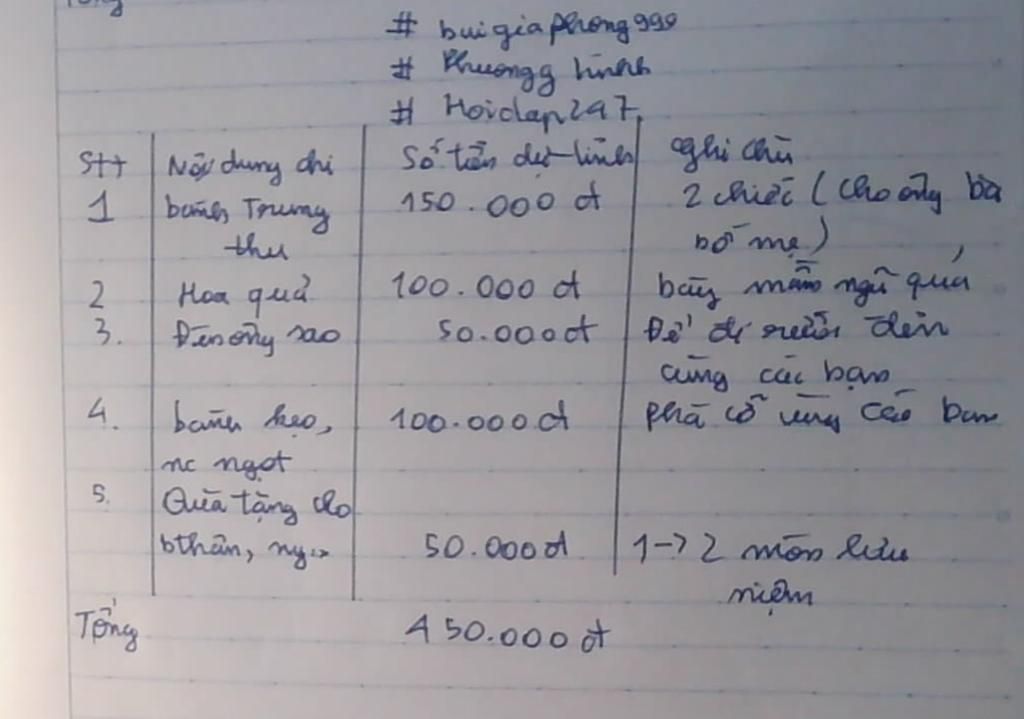 # buigiaphong990
# Phuongg linhh
# Hoidap247
Stt Nội dung chi Số tiền dự tính ghi chú
1 bánh Trung 150.000 đ 2 chiếc (cho ông bà
thu bố mẹ)
2 Hoa quả 100.000 đ bày mâm ngũ quả
3. Đèn ông sao 50.000đ Để đi rước đèn
cùng các bạn
4. bánh kẹo, 100.000 đ phá cỗ cùng các bạn
nc ngọt
5. Quà tặng cho
bthân, ny... 50.000đ 1-> 2 món lưu
niệm
Tổng 450.000 đ